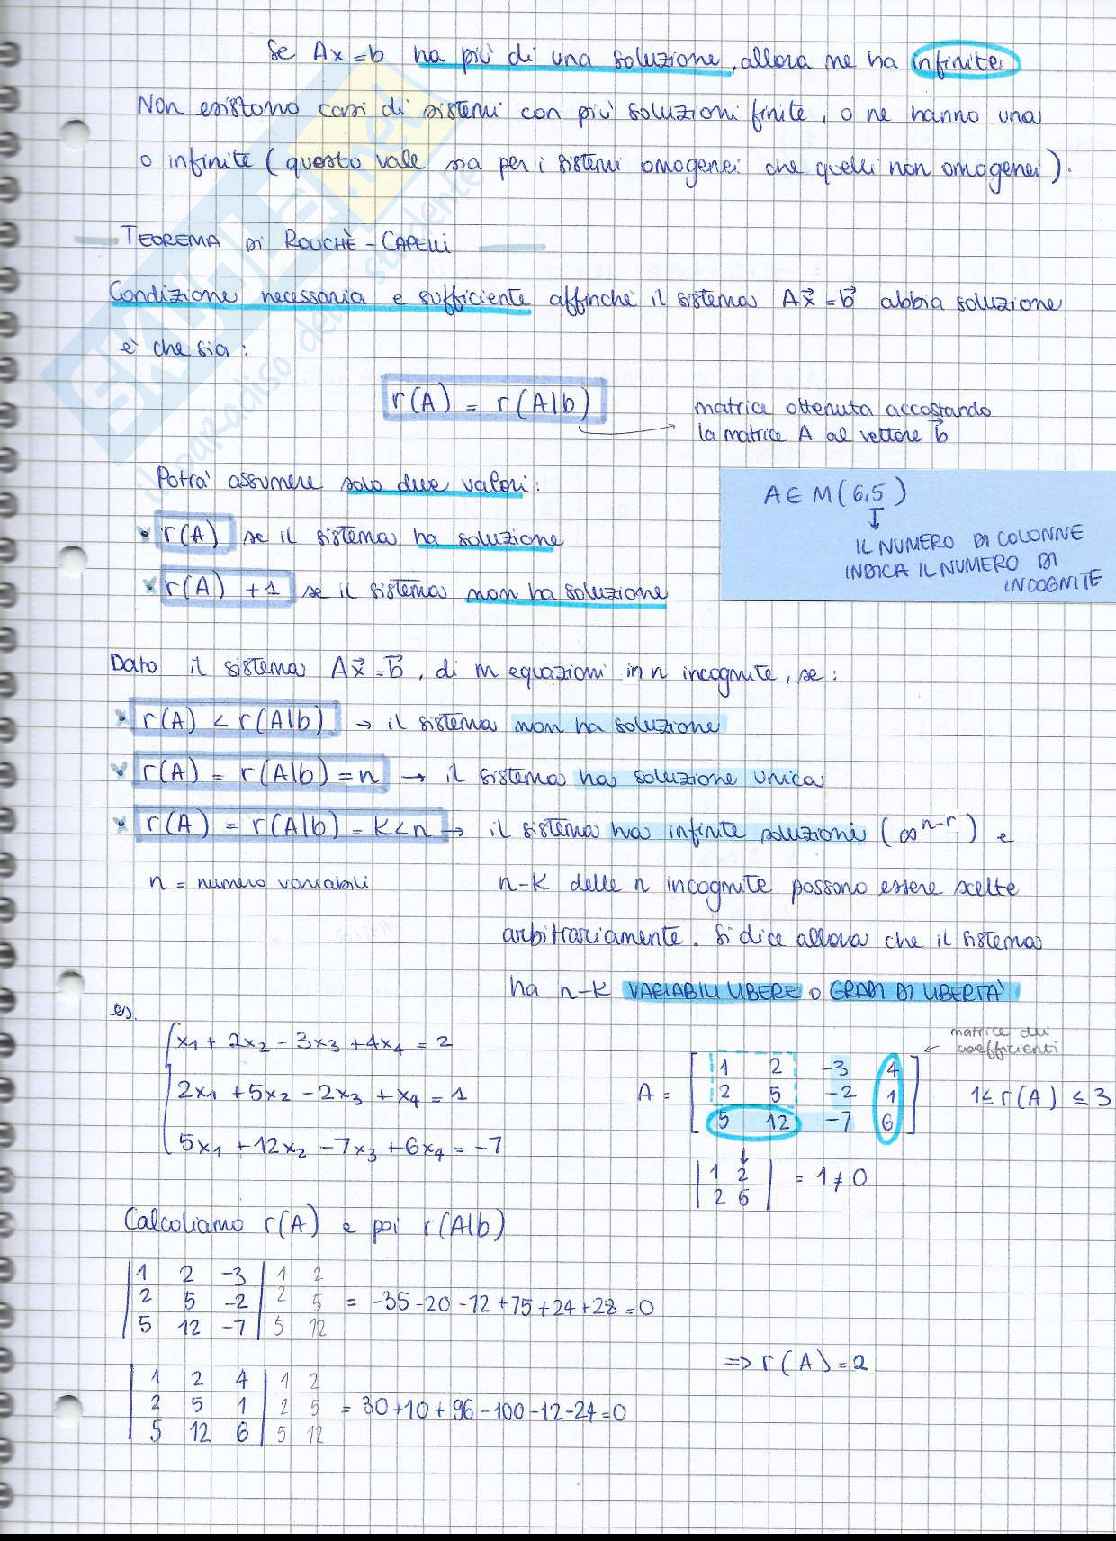 Se Ax=b ha più di una soluzione, allora ne ha infinite
Non esistono casi di sistemi con più soluzioni finite, o ne hanno una
o infinite (questo vale sia per i sistemi omogenei che quelli non omogenei).
TEOREMA DI ROUCHÈ-CAPELLI
Condizione necessaria e sufficiente affinchè il sistema Ax⃗=b⃗ abbia soluzione
è che sia:
r(A) = r(A|b)
matrice ottenuta accostando
la matrice A al vettore b⃗
Potrà assumere solo due valori:
• r(A) se il sistema ha soluzione
• r(A) +1 se il sistema non ha soluzione
A∈M(6,5)
↓
IL NUMERO DI COLONNE
INDICA IL NUMERO DI
INCOGNITE
Dato il sistema Ax⃗=b⃗, di m equazioni in n incognite, se:
• r(A) < r(A|b) → il sistema non ha soluzione
• r(A) = r(A|b) = n → il sistema ha soluzione unica
• r(A) = r(A|b) = K<n → il sistema ha infinite soluzioni (∞ⁿ⁻ʳ) e
n = numero variabili
n-K delle n incognite possono essere scelte
arbitrariamente. Si dice allora che il sistema
ha n-K VARIABILI LIBERE o GRADI DI LIBERTÀ
es.
x₁ + 2x₂ - 3x₃ + 4x₄ = 2
2x₁ + 5x₂ - 2x₃ + x₄ = 1
5x₁ + 12x₂ - 7x₃ + 6x₄ = -7
matrice dei
coefficienti
A = [1 2 -3 4
2 5 -2 1
5 12 -7 6]
1≤ r(A) ≤ 3
|1 2
2 5| = 1 ≠ 0
Calcoliamo r(A) e poi r(A|b)
|1 2 -3| 1 2
|2 5 -2| 2 5 = -35-20-72+75+24+28=0
|5 12 -7| 5 12
⇒ r(A)=2
|1 2 4| 1 2
|2 5 1| 2 5 = 30+10+96-100-12-24=0
|5 12 6| 5 12